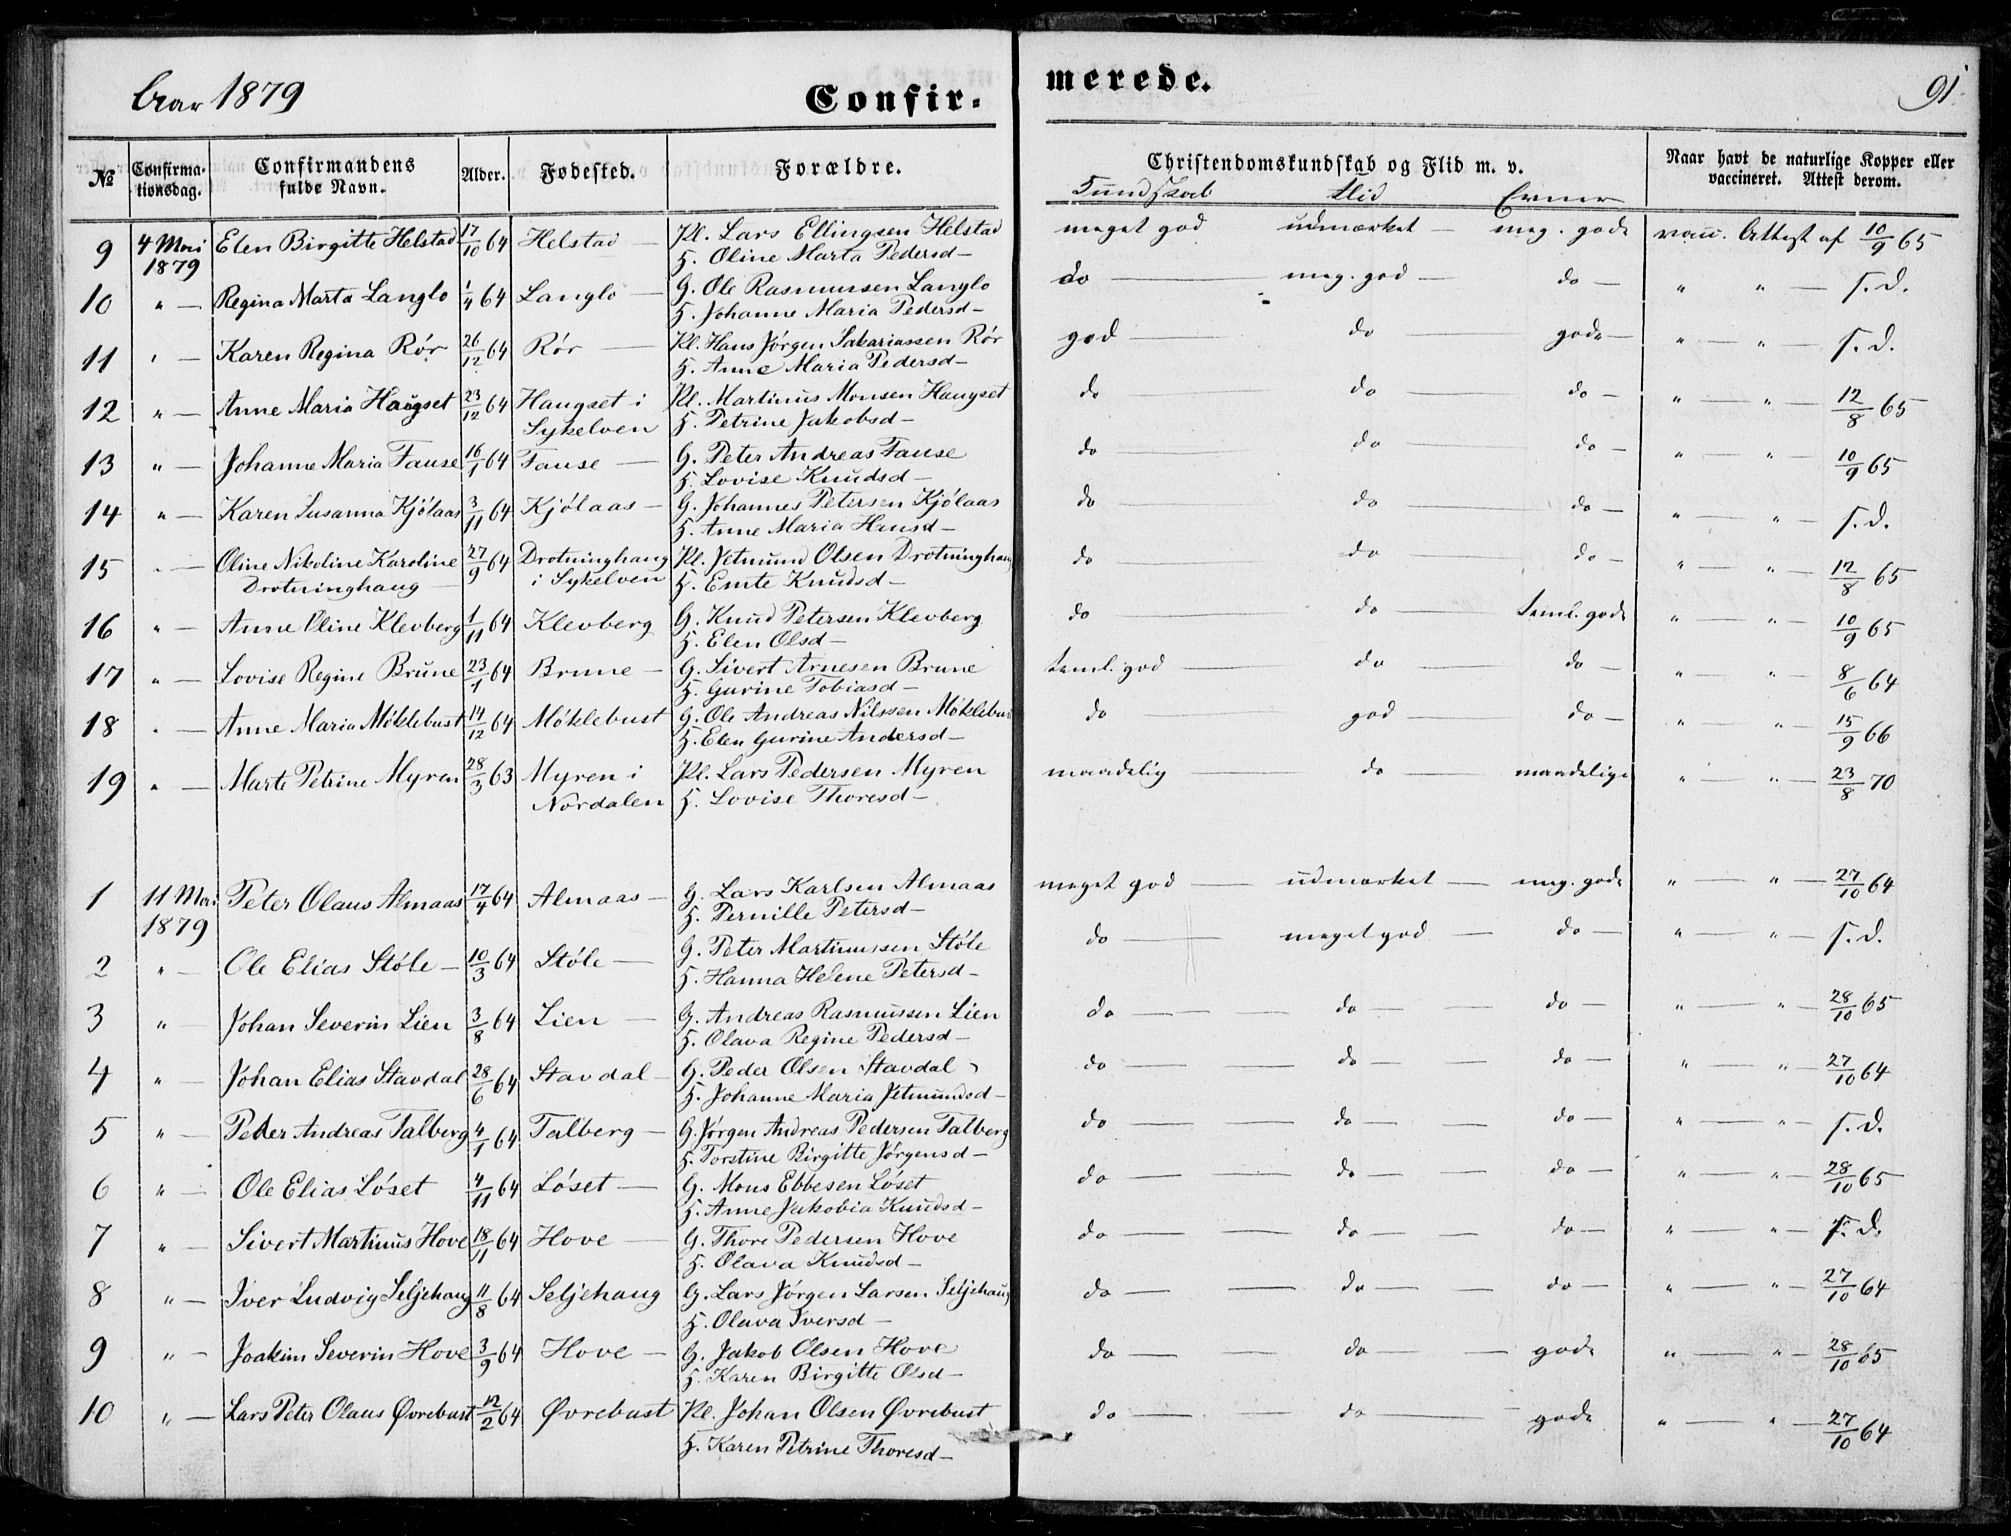 Aar 1879
Confir-
merede.
91
№
Confirma-
tionsdag.
Confirmandens
fulde Navn.
Alder.
Fødested.
Forældre.
Christendomskundskab og Flid m. v.
Kundskab Flid Evner
Naar havt de naturlige Kopper eller
vaccineret. Attest derom.
9 4 Mai Elen Birgitte Helstad 17/10 64 Helstad — Pl. Lars Ellingsen Helstad meget god udmærket — meg. gode vacc. Attest af 10/9 65
1879 H. Oline Marta Pedersd—
10 " — Regina Marta Langlo 1/4 64 Langlo — G. Ole Rasmussen Langlo do — meg. god — do — " " — s. d.
H. Johanne Maria Pedersd—
11 " — Karen Regina Rór 26/12 64 Rór — Pl. Hans Jórgen Sakariassen Rór god — do — gode — " — " — s. d.
H. Anne Maria Pedersd—
12 " — Anne Maria Haugset 23/12 64 Haugset i Pl. Martinus Monsen Haugset do — do — do — " — " — 12/8 65
Sykelven H. Petrine Jakobsd—
13 " — Johanne Maria Fause 16/1 64 Fause — G. Peter Andreas Fause do — do — do — " — " — 10/9 65
H. Lovise Knudsd—
14 " — Karen Susanna Kjólaas 3/11 64 Kjólaas — G. Johannes Petersen Kjólaas do — do — do — " — " — s. d.
H. Anne Maria Hansd—
15 " — Oline Nikoline Karoline 27/9 64 Drotninghaug Pl. Jetmund Olsen Drotninghaug do — do — do — " — " — 12/8 65
Drotninghaug i Sykelven H. Emte Knudsd—
16 " — Anne Oline Klevberg 1/11 64 Klevberg G. Knud Petersen Klevberg do — do — teml. gode " — " — 10/9 65
H. Elen Olsd—
17 " — Lovise Regine Brune 23/1 64 Brune — G. Sivert Arnesen Brune teml. god — do — do — " — " — 8/6 64
H. Gurine Tobiasd—
18 " — Anne Maria Móklebust 14/12 64 Móklebust G. Ole Andreas Nilssen Móklebust do — god — do — " — " — 15/9 66
H. Elen Gurine Andersd—
19 " — Marte Petrine Myren 28/3 63 Myren i Pl. Lars Pedersen Myren maadelig — do — maadelige " — " — 23/8 70
Nordalen H. Lovise Thoresd—
1 11 Mai Peter Olaus Almaas 17/4 64 Almaas — G. Lars Karlsen Almaas meget god — udmærket — meg. gode " — " — 27/10 64
1879 H. Pernille Petersd—
2 " — Ole Elias Stóle — 10/3 64 Stóle — G. Peter Martinussen Stóle do — meget god — do — " — " — s. d.
H. Hanna Helene Petersd—
3 " Johan Severin Lien 3/8 64 Lien — G. Andreas Rasmussen Lien do — do — do — " — " — 28/10 65
H. Olava Regine Pedersd—
4 " — Johan Elias Stavdal 28/6 64 Stavdal — G. Peder Olsen Stavdal do — do — do — " — " — 27/10 64
H. Johanne Maria Jetmundsd—
5 " — Peder Andreas Talberg 4/1 64 Talberg — G. Jórgen Andreas Pedersen Talberg do — do — do — " — " — s. d.
H. Torstine Birgitte Jórgensd—
6 " — Ole Elias Lóset 4/11 64 Lóset — G. Mons Ebbesen Lóset do — do — do — " — " — 28/10 65
H. Anne Jakobia Knudsd—
7 " — Sivert Martinus Hove 18/11 64 Hove — G. Thore Pedersen Hove do — do — do — " — " — s. d.
H. Olava Knudsd—
8 " — Iver Ludvig Seljehaug 11/8 64 Seljehaug G. Lars Jórgen Larsen Seljehaug do — do — do — " — " — 27/10 64
H. Olava Iversd—
9 " — Joakim Severin Hove 3/9 64 Hove — G. Jakob Olsen Hove do — do — gode " — " — 28/10 65
H. Karen Birgitte Olsd—
10 " — Lars Peter Olaus Øvrebust 12/2 64 Øvrebust Pl. Johan Olsen Øvrebust do — do — gode " — " — 27/10 64
H. Karen Petrine Thoresd—